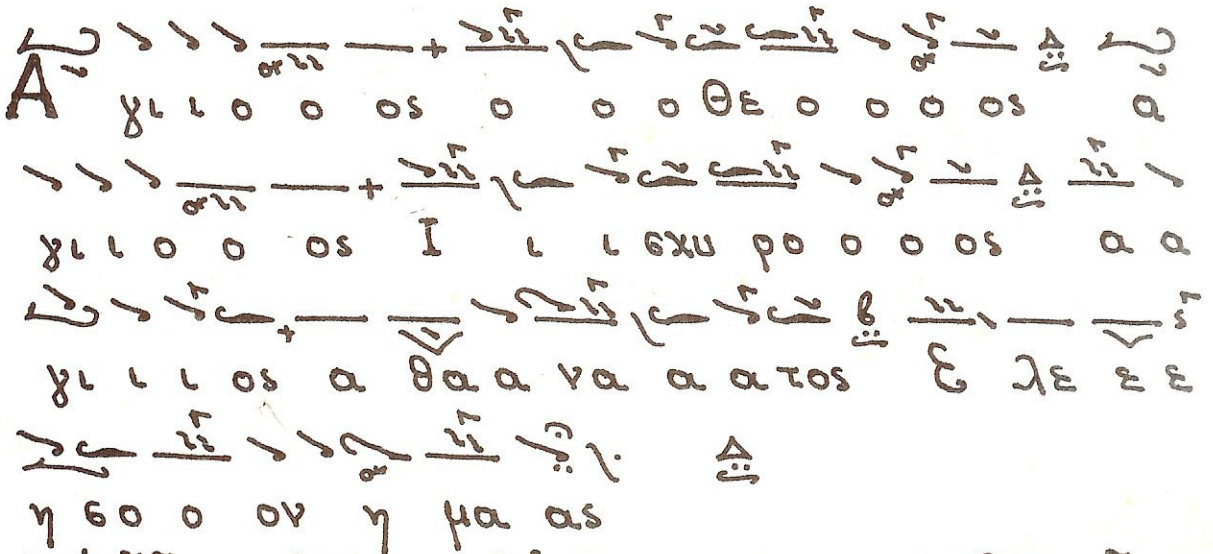 Α γι ι ο ο ος ο ο ο Θε ο ο ο ος α
γι ι ο ο ος Ι ι ι σχυ ρο ο ο ος α α
γι ι ι ος α θα α να α α τος Ε λε ε ε
η σο ο ον η μα ας